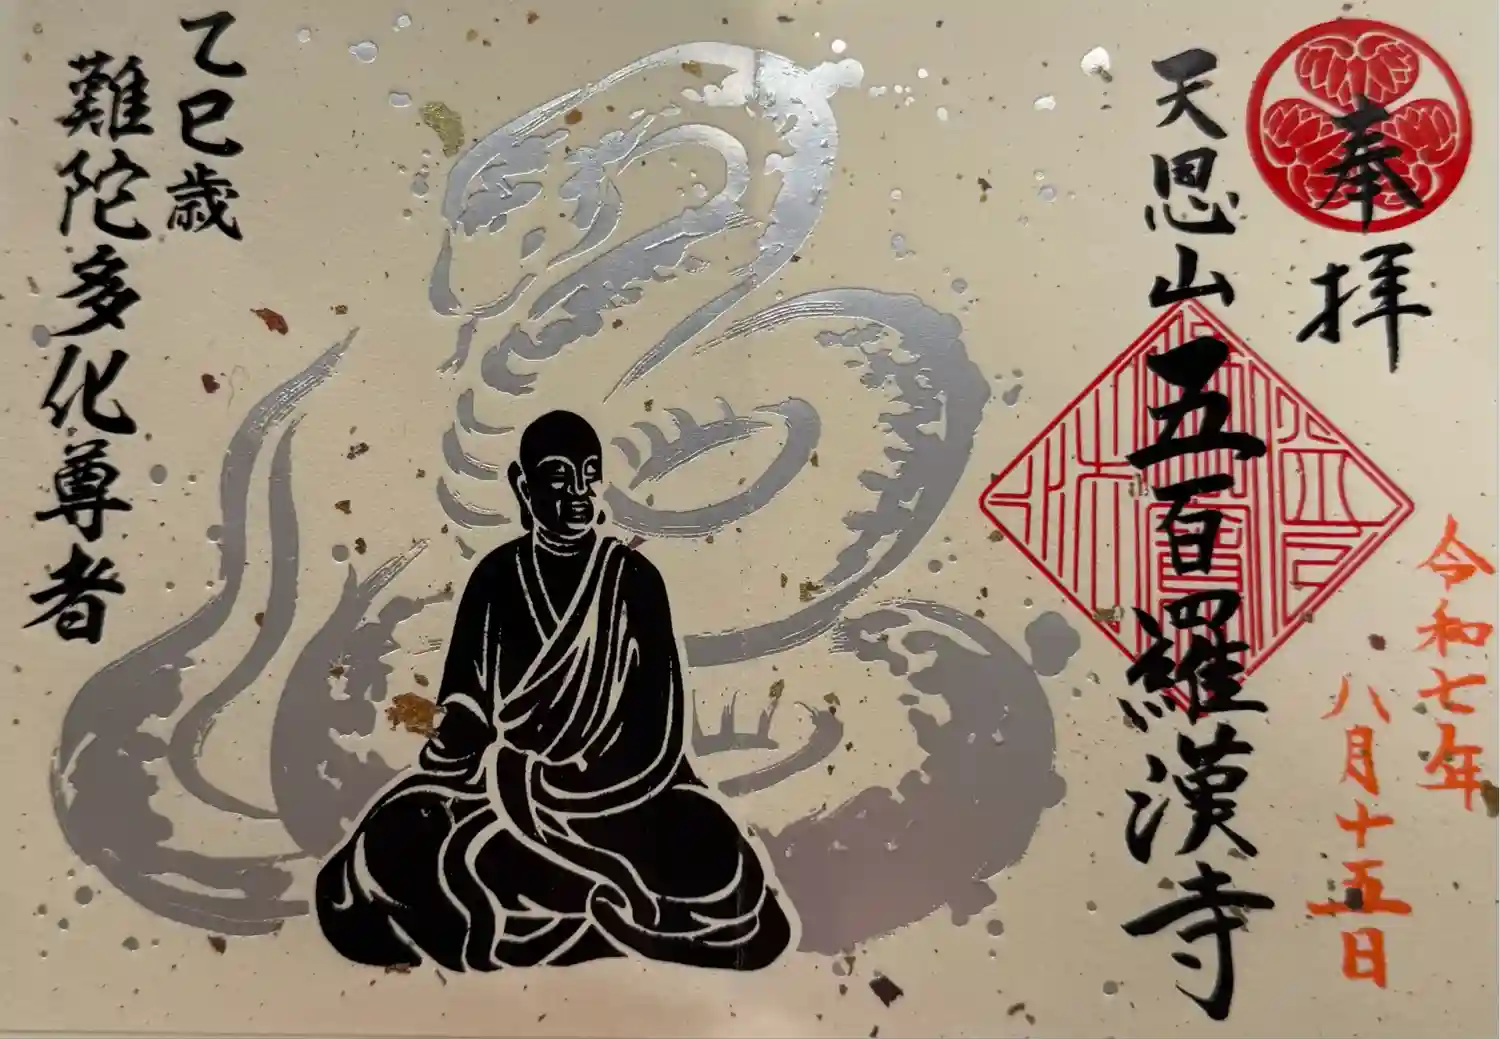 奉拝
天恩山五百羅漢寺
令和七年
八月十五日
乙巳歳
難陀多化尊者